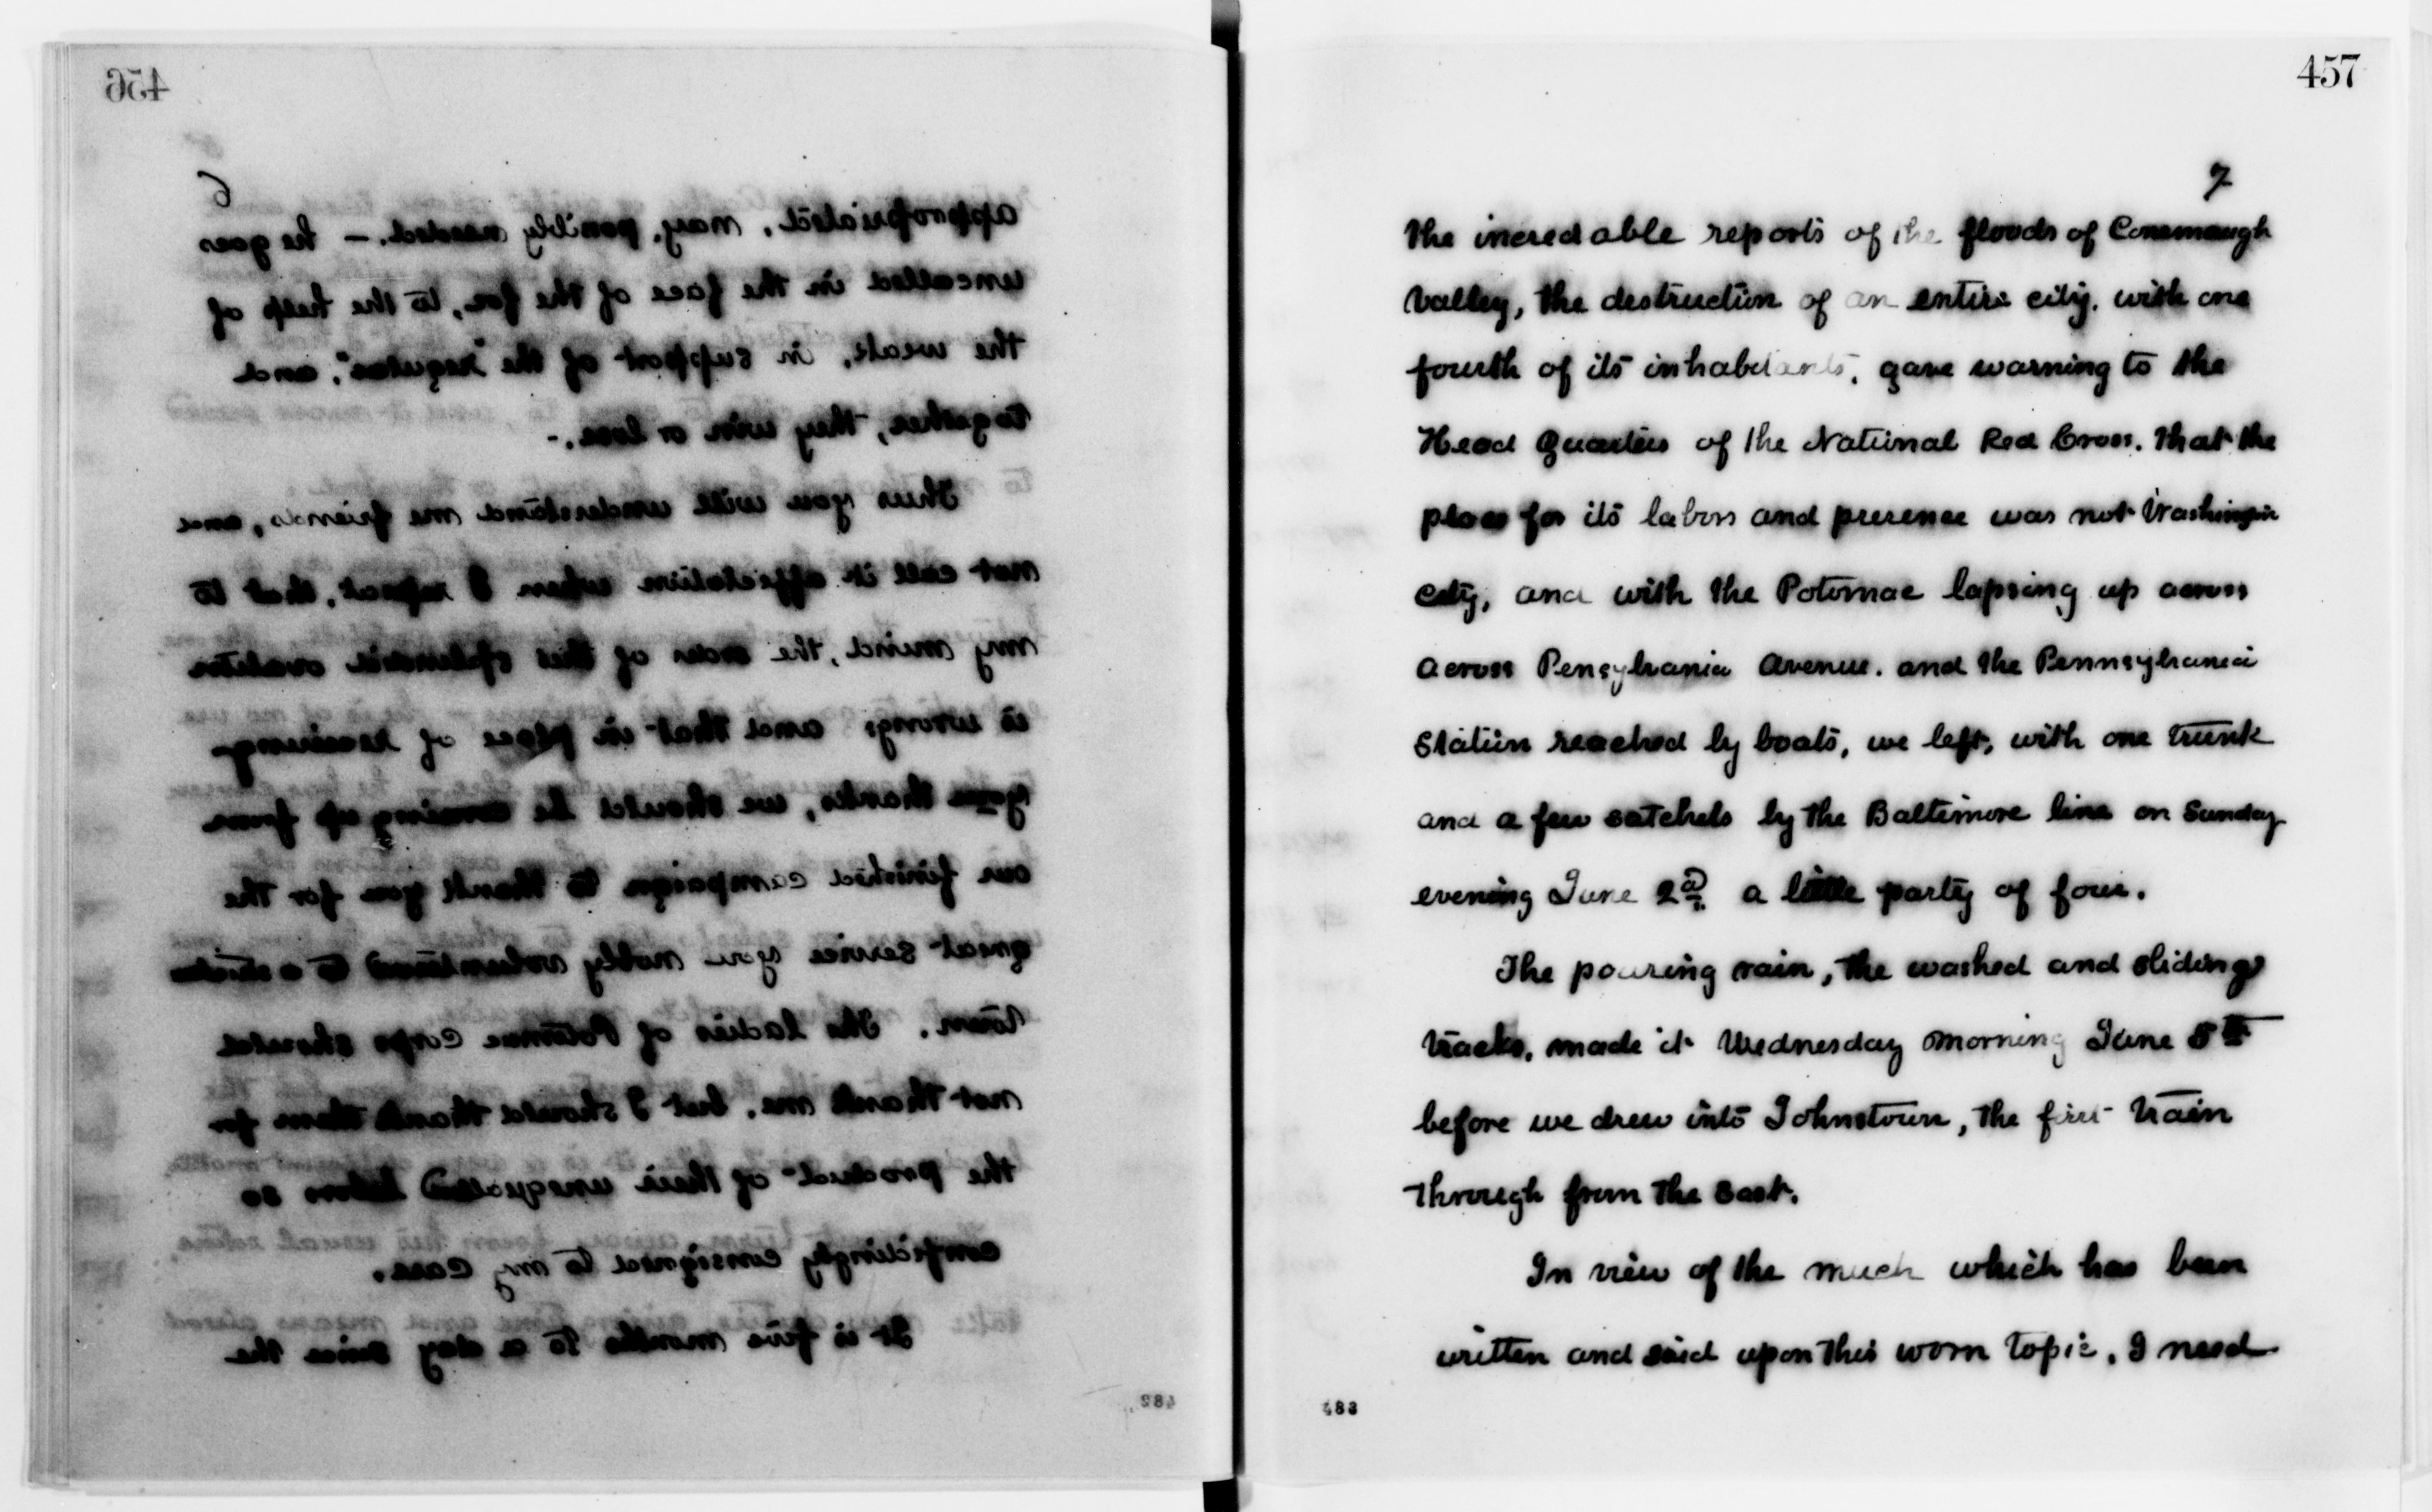 456
6
appropriated, may, possibly needed. — he goes
uncalled in the face of the foe, to the help of
the weak, in support of the "regular", and
together, they win or lose. -
Thus you will understand me friends, and
not call it affectation when I repeat, that, to
my mind, the order of this splendid ovation
is wrong; and that in place of receiving
your thanks, we should be coming up from
our finished campaign to thank you for the
great service you nobly volunteered to a
town. The ladies of Potomac Corps should
not thank me, but I should thank them for
the product of their unequalled labors so
confidingly consigned to my care.
It is five months to a day since the
482
457
7
the incredable reports of the floods of Conemaugh
Valley, the destruction of an entire city, with one
fourth of its inhabitants, gave warning to the
Head Quarters of the National Red Cross, that the
place for its labors and presence was not Washington
City, and with the Potomac lapsing up across
across Pensylvania Avenue. and the Pennsylvania
Station reached by boats, we left, with one trunk
and a few satchels by the Baltimore line on Sunday
evening June 2d, a little party of four.
The pouring rain, the washed and sliding
tracks, made it Wednesday morning June 5th
before we drew into Johnstown, the first train
through from the East.
In view of the much which has been
written and said upon this worn topic, I need
483